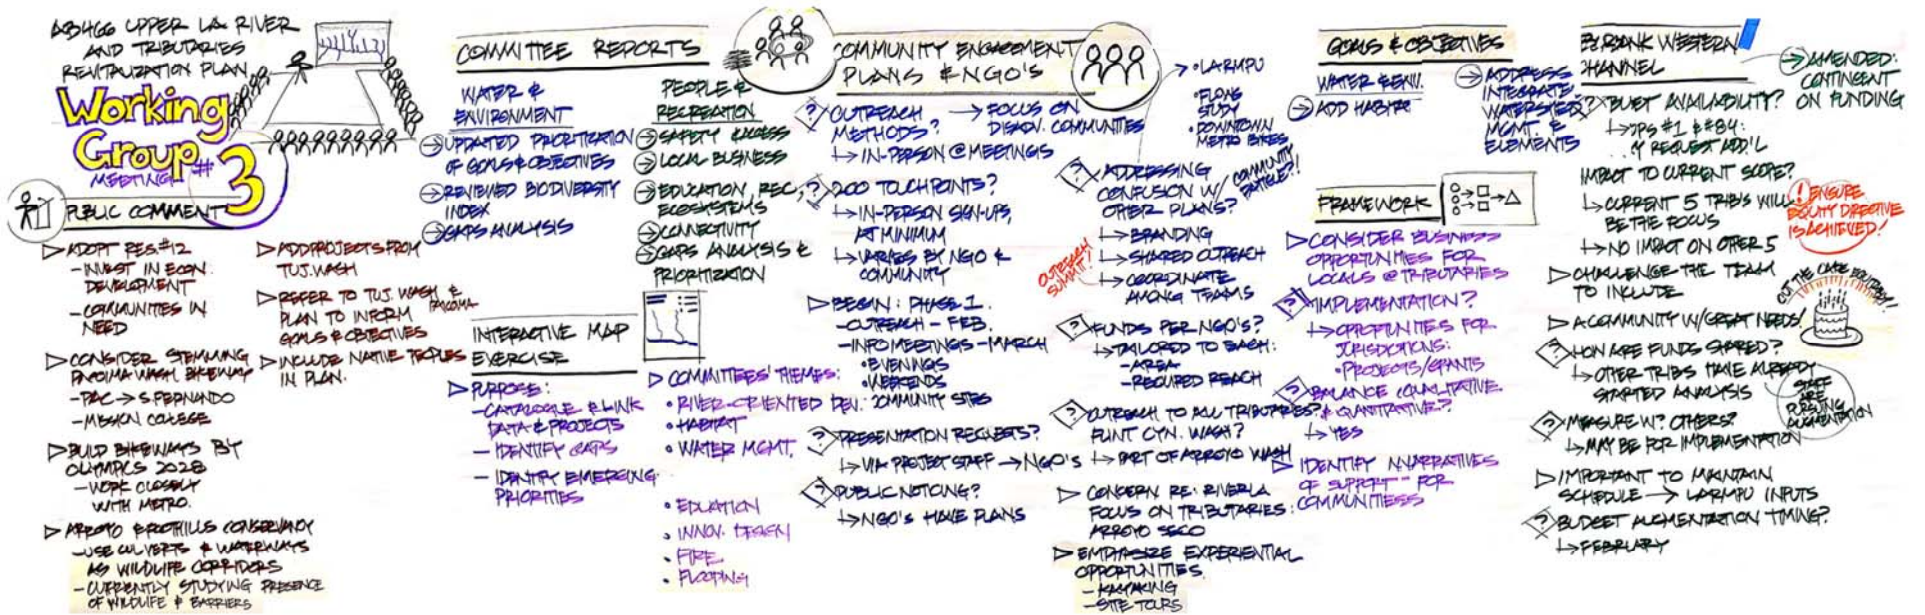 AB466 UPPER LA RIVER
AND TRIBUTARIES
REVITALIZATION PLAN
Working
Group
MEETING #
3
PUBLIC COMMENT
▷ ADOPT RES.#12
- INVEST IN ECON.
DEVELOPMENT
- COMMUNITIES IN
NEED
▷ CONSIDER STEMMING
PACOIMA WASH BIKEWAY
- PAC → S.FERNANDO
- MISSION COLLEGE
▷ BUILD BIKEWAYS BY
OLYMPICS 2028
- WORK CLOSELY
WITH METRO.
▷ ARROYO & FOOTHILLS CONSERVANCY
- USE CULVERTS & WATERWAYS
AS WILDLIFE CORRIDORS
- CURRENTLY STUDYING PRESENCE
OF WILDLIFE & BARRIERS
▷ ADD PROJECTS FROM
TUJ. WASH
▷ REFER TO TUJ. WASH &
PACOIMA
PLAN TO INFORM
GOALS & OBJECTIVES
▷ INCLUDE NATIVE PEOPLES
IN PLAN.
COMMITTEE REPORTS
WATER &
ENVIRONMENT
→ UPDATED PRIORITIZATION
OF GOALS & OBJECTIVES
→ REVIEWED BIODIVERSITY
INDEX
→ GAPS ANALYSIS
PEOPLE &
RECREATION
→ SAFETY & ACCESS
→ LOCAL BUSINESS
→ EDUCATION, REC,
ECOSYSTEMS
→ CONNECTIVITY
→ GAPS ANALYSIS &
PRIORITIZATION
INTERACTIVE MAP
EXERCISE
▷ PURPOSE:
- CATALOGUE & LINK
DATA & PROJECTS
- IDENTIFY GAPS
- IDENTIFY EMERGING
PRIORITIES
▷ COMMITTEES' THEMES:
• RIVER-ORIENTED DEV.
• HABITAT
• WATER MGMT.
• EDUCATION
• INNOV. DESIGN
• FIRE
• FLOODING
COMMUNITY ENGAGEMENT
PLANS & NGO'S
? OUTREACH
METHODS?
→ FOCUS ON
DISADV. COMMUNITIES
↳ IN-PERSON @ MEETINGS
? 200 TOUCHPOINTS?
↳ IN-PERSON SIGN-UPS,
AT MINIMUM
↳ VARIES BY NGO &
COMMUNITY
▷ BEGIN: PHASE 1.
- OUTREACH - FEB.
- INFO MEETINGS - MARCH
• EVENINGS
• WEEKENDS
COMMUNITY SITES
? PRESENTATION REQUESTS?
↳ VIA PROJECT STAFF → NGO'S
? PUBLIC NOTICING?
↳ NGO'S HAVE PLANS
→ • LARMPU
STUDY
• DOWNTOWN
METRO BIKES
? ADDRESSING
CONFUSION W/
OTHER PLANS?
COMMUNITY
FATIGUE?!
↳ BRANDING
↳ SHARED OUTREACH
↳ COORDINATE
AMONG TEAMS
OUTREACH
SUMMIT!
? FUNDS PER NGO'S?
↳ TAILORED TO EACH:
- AREA
- REQUIRED REACH
? OUTREACH TO ALL TRIBUTARIES?
FLINT CYN. WASH?
↳ PART OF ARROYO WASH
▷ CONCERN RE: RIVERLA
FOCUS ON TRIBUTARIES:
ARROYO SECO
▷ EMPHASIZE EXPERIENTIAL
OPPORTUNITIES.
- KAYAKING
- SITE TOURS
GOALS & OBJECTIVES
WATER & ENV.
→ ADD HABITAT
→ ADDRESS
INTEGRATE
WATERSHED
MGMT. &
ELEMENTS
FRAMEWORK
▷ CONSIDER BUSINESS
OPPORTUNITIES FOR
LOCALS @ TRIBUTARIES
? IMPLEMENTATION?
↳ OPPORTUNITIES FOR
JURISDICTIONS:
• PROJECTS/GRANTS
? BALANCE QUALITATIVE
& QUANTITATIVE?
↳ YES
▷ IDENTIFY NARRATIVES
OF SUPPORT - FOR
COMMUNITIESS
BURBANK WESTERN
CHANNEL
→ AMENDED:
CONTINGENT
ON FUNDING
? BUDGET AVAILABILITY?
#1 & #84:
REQUEST ADD'L
IMPACT TO CURRENT SCOPE?
↳ CURRENT 5 TRIB'S WILL
BE THE FOCUS
↳ NO IMPACT ON OTHER 5
! ENSURE
EQUITY DIRECTIVE
IS ACHIEVED!
▷ CHALLENGE THE TEAM
TO INCLUDE
CUT THE CAKE EQUITABLY!
▷ A COMMUNITY W/GREAT NEEDS!
? HOW ARE FUNDS SHARED?
↳ OTHER TRIBS HAVE ALREADY
STARTED ANALYSIS
STAFF
ARE
PURSUING
AUGMENTATION
? MEASURE W? OTHERS?
↳ MAY BE FOR IMPLEMENTATION
▷ IMPORTANT TO MAINTAIN
SCHEDULE → LARMPU INPUTS
? BUDGET AUGMENTATION TIMING?
↳ FEBRUARY